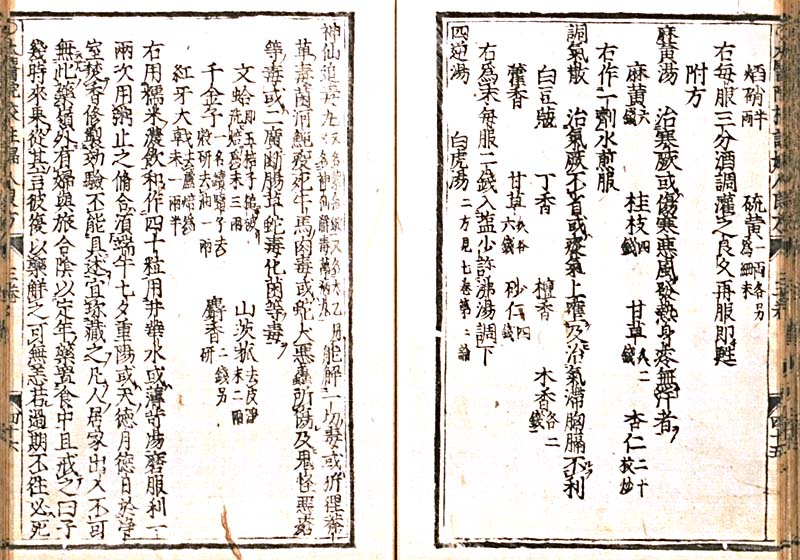 焰硝半 硫黃一兩各另爲細末
右每服三分酒調灌之良久再服即甦
附方
麻黃湯 治寒厥或傷寒惡風發熱身疼無汗者
麻黃六錢 桂枝四錢 甘草炙二錢 杏仁二十枚炒
右作一劑水煎服
調氣散 治氣厥不省或痰氣上壅及治氣滯胸膈不利
白豆蔲 丁香 檀香 木香各二錢
藿香 甘草炙各六錢 砂仁四錢
右爲末每服二錢入塩少許沸湯調下
四逆湯 白虎湯二方見七卷第二論
神仙追毒丸 能解一切毒或
草毒菌河魨疫死牛馬肉毒或蛇犬惡蟲所傷及鬼怪
等毒或二廣斷腸草蛇毒化菌等毒
文蛤即五棓子 三兩 山茨菰去皮淨末二兩
千金子一名續隨子去殼研去油一兩 麝香二錢另研
紅牙大戟去蘆焙乾末一兩半
右用糯米濃飮和作四十粒用井華水或薄苛湯磨服利一
兩次用粥止之脩合須端午七夕重陽或天德月德日於淨
室焚香修製効驗不能具述宜珍藏之凡人居家出入不可
無此藥嶺外有婦與旅合陰以定年藥置食中且戒之曰子
幾時來來從其言彼復以藥解之可無恙若過期不往必死